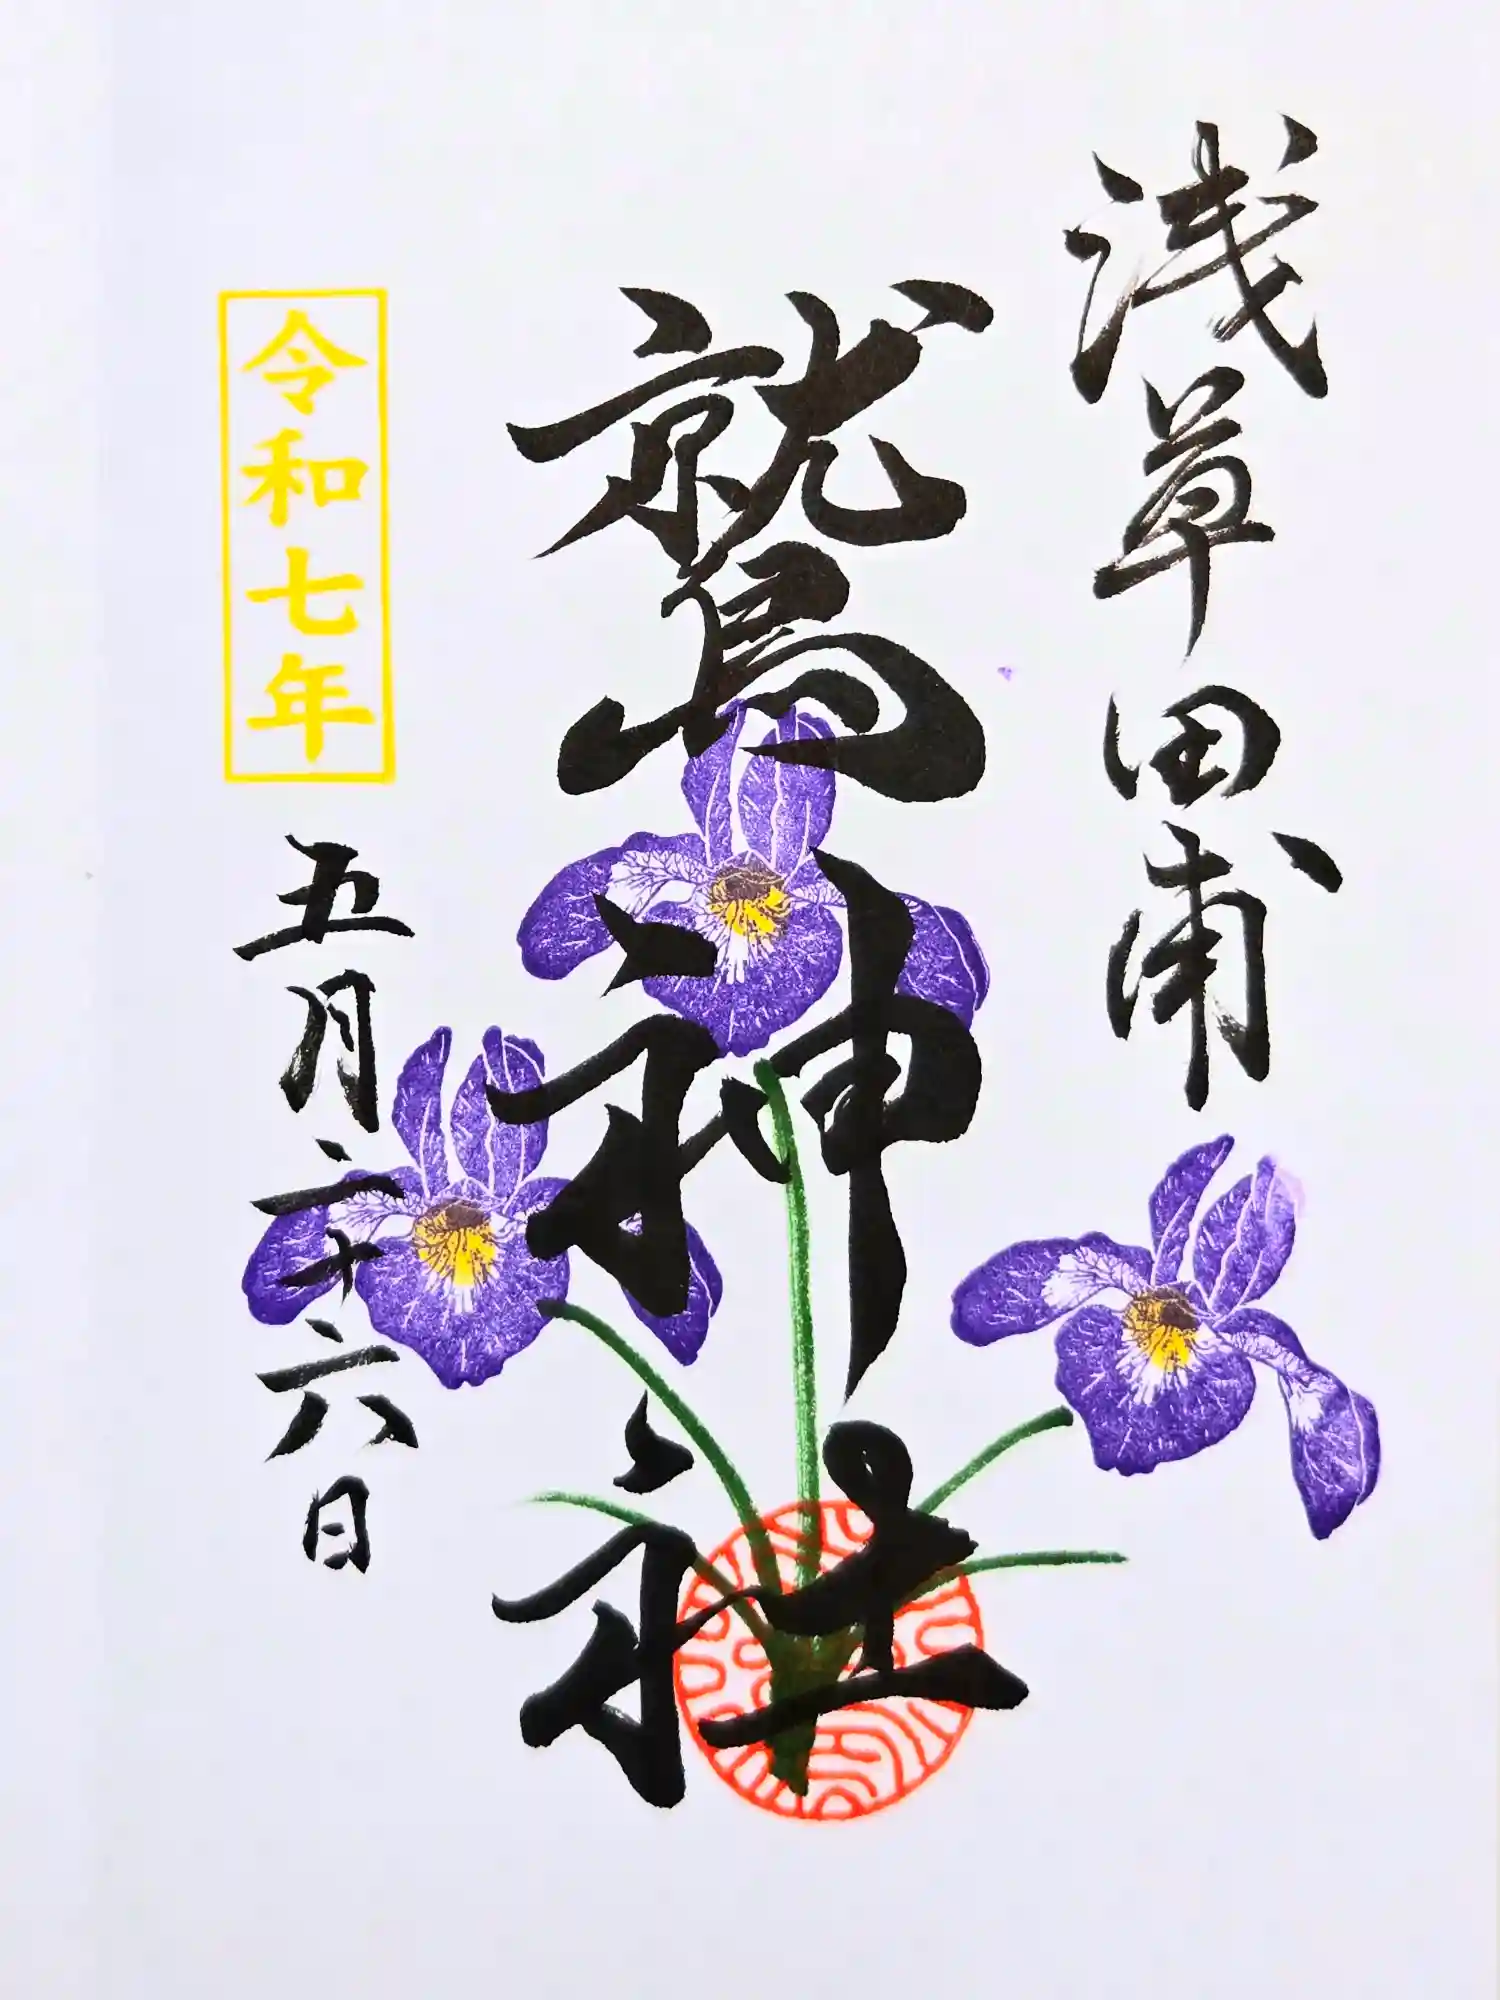 浅草田甫
鷲神社
令和七年
五月二十六日